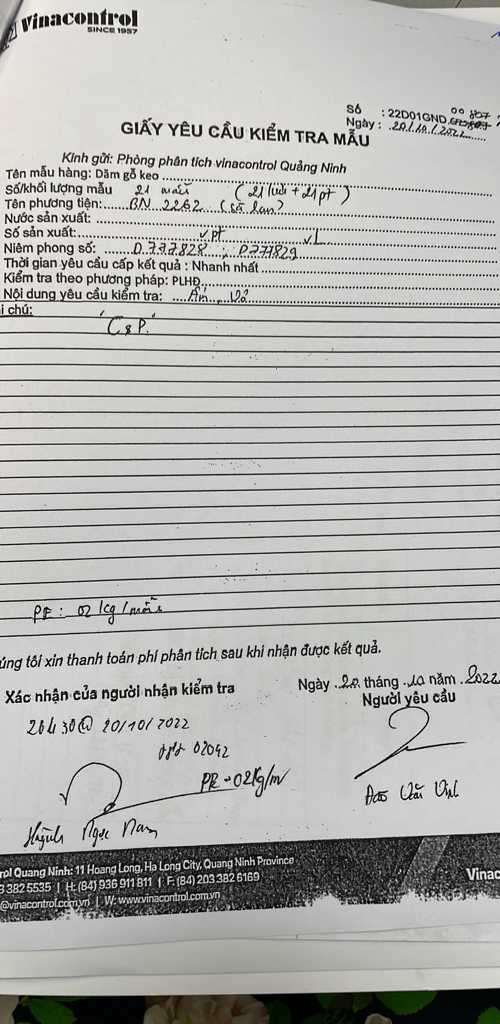 Vinacontrol
SINCE 1957
Số : 22D01GND.
00 807
Ngày : 20/10/2022
GIẤY YÊU CẦU KIỂM TRA MẪU
Kính gửi: Phòng phân tích vinacontrol Quảng Ninh
Tên mẫu hàng: Dăm gỗ keo
Số/khối lượng mẫu 21 mẫu (21 lưu + 21 pt)
Tên phương tiện: BN 2262 (sà lan)
Nước sản xuất:
Số sản xuất: pt L
Niêm phong số: D.777828 ; D777829
Thời gian yêu cầu cấp kết quả : Nhanh nhất
Kiểm tra theo phương pháp: PLHĐ
Nội dung yêu cầu kiểm tra: Ẩm, Vỏ
i chú:
'C&P'
PE : 02 kg/mẫu
úng tôi xin thanh toán phí phân tích sau khi nhận được kết quả.
Ngày 20 tháng 10 năm 2022
Xác nhận của người nhận kiểm tra
Người yêu cầu
20h30 @ 20/10/2022
02042
PE - 02kg/m
Đào Văn Vinh
Huỳnh Ngọc Nam
rol Quang Ninh: 11 Hoang Long, Ha Long City, Quang Ninh Province
3 382 5535 | H: (84) 936 911 811 | F: (84) 203 382 6169
@vinacontrol.com.vn | W: www.vinacontrol.com.vn
Vinac